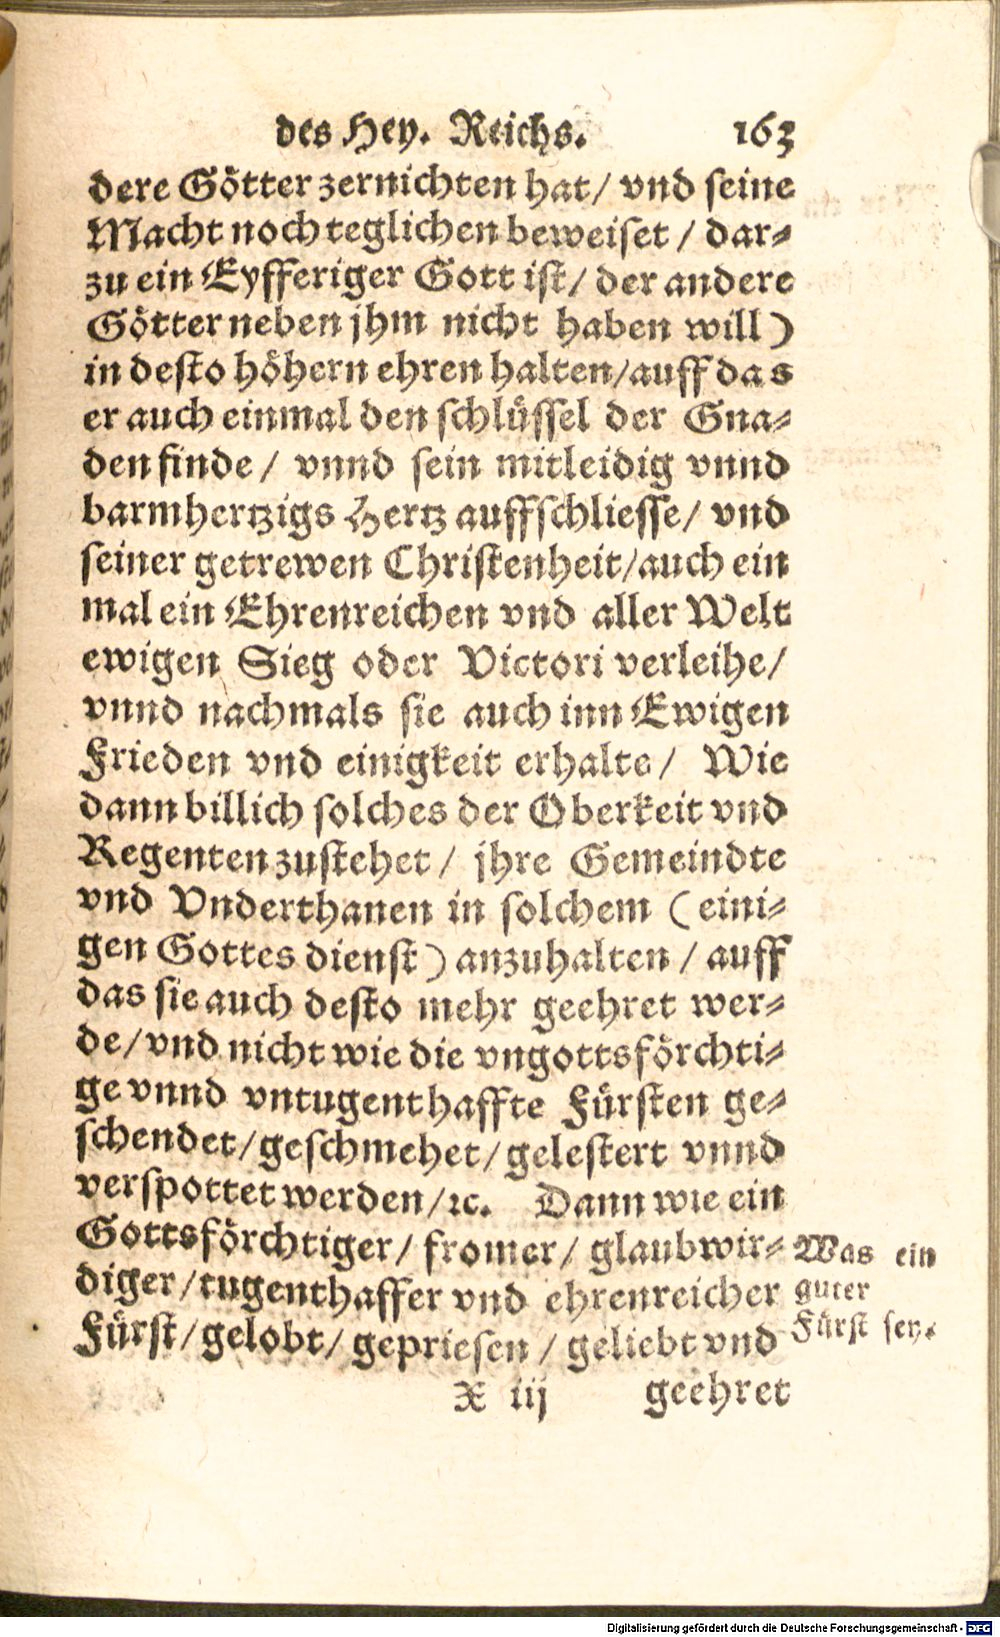 des Hey. Reichs. 163
dere Götter zernichten hat/ vnd seine
Macht noch teglichen beweiset / dar-
zu ein Eyfferiger Gott ist/ der andere
Götter neben jhm nicht haben will)
in desto höhern ehren halten/auff das
er auch einmal den schlüssel der Gna-
den finde/ vnnd sein mitleidig vnnd
barmhertzigs Hertz auffschliesse/ vnd
seiner getrewen Christenheit/auch ein
mal ein Ehrenreichen vnd aller Welt
ewigen Sieg oder Victori verleihe/
vnnd nachmals sie auch inn Ewigen
Frieden vnd einigkeit erhalte/ Wie
dann billich solches der Oberkeit vnd
Regenten zustehet/ jhre Gemeindte
vnd Vnderthanen in solchem (eini-
gen Gottes dienst) anzuhalten / auff
das sie auch desto mehr geehret wer-
de/vnd nicht wie die vngottsförchti-
ge vnnd vntugenthaffte Fürsten ge-
schendet/geschmehet/gelestert vnnd
verspottet werden/ꝛc. Dann wie ein
Gottsförchtiger/ fromer/ glaubwir-
diger/tugenthaffer vnd ehrenreicher
Fürst/gelobt/gepriesen/geliebt vnd
Was ein
guter
Fürst sey.
X iij geehret
Digitalisierung gefördert durch die Deutsche Forschungsgemeinschaft - DFG